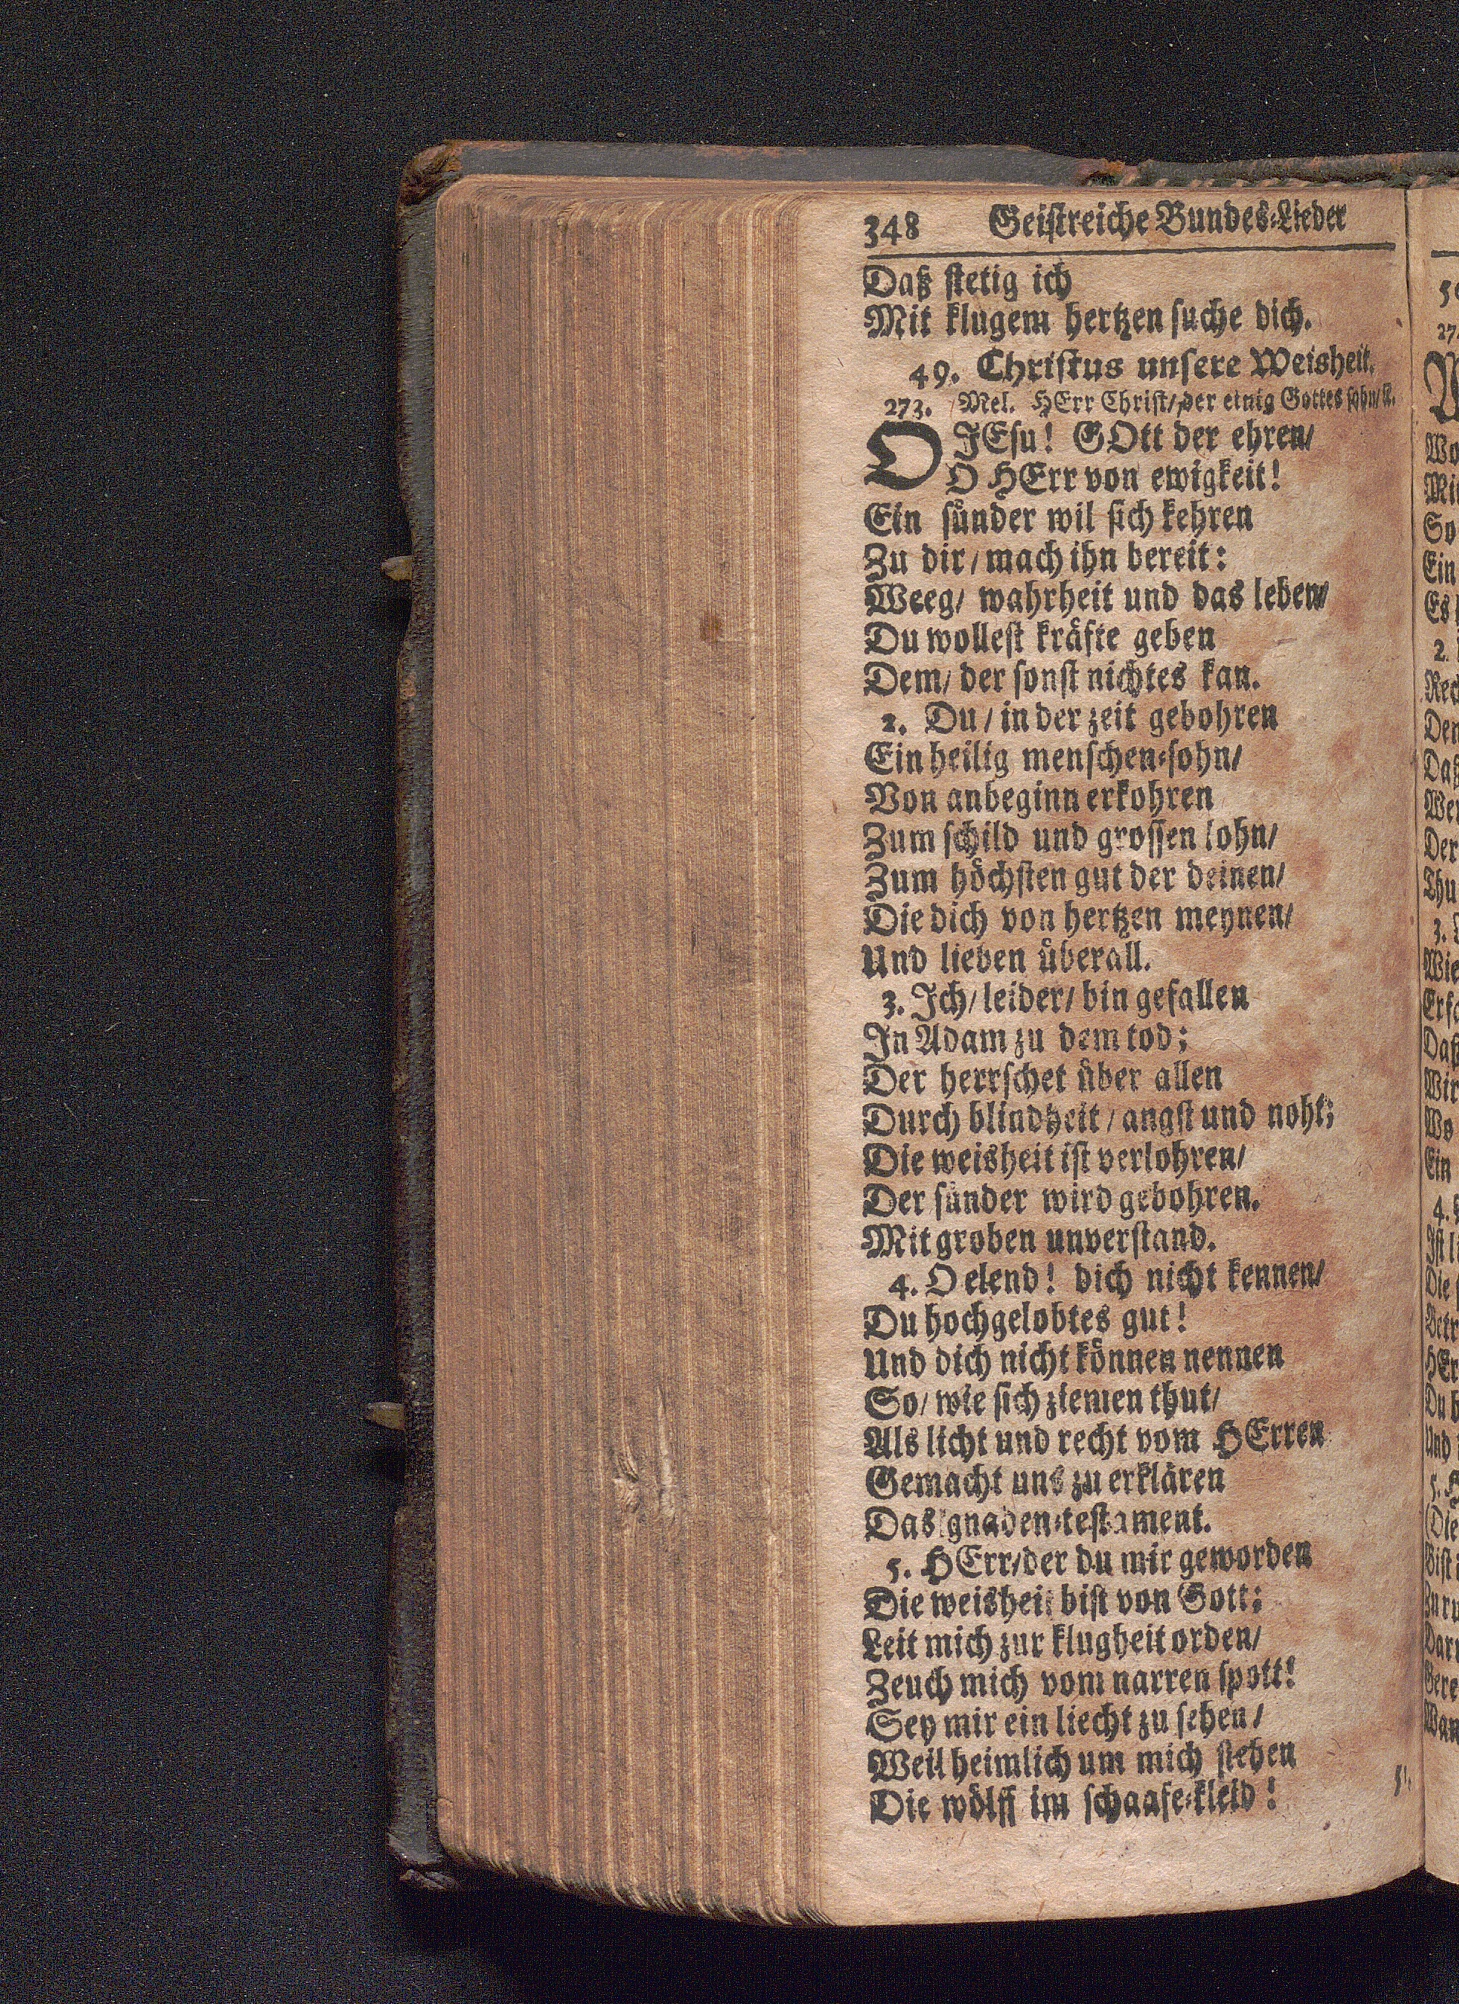 348 Geistreiche Bundes-Lieder
Daß stetig ich
Mit klugem hertzen suche dich.
49. Christus unsere Weisheit.
273. Mel. HErr Christ/ der einig Gottes sohn/ ꝛc.
O JEsu! GOtt der ehren/
O HErr von ewigkeit!
Ein sünder wil sich kehren
Zu dir/ mach ihn bereit:
Weeg/ wahrheit und das leben/
Du wollest kräfte geben
Dem/ der sonst nichtes kan.
2. Du/ in der zeit gebohren
Ein heilig menschen-sohn/
Von anbeginn erkohren
Zum schild und grossen lohn/
Zum höchsten gut der deinen/
Die dich von hertzen meynen/
Und lieben überall.
3. Jch/ leider/ bin gefallen
Jn Adam zu dem tod;
Der herrschet über allen
Durch blindheit/ angst und noht;
Die weisheit ist verlohren/
Der sünder wird gebohren.
Mit groben unverstand.
4. O elend! dich nicht kennen/
Du hochgelobtes gut!
Und dich nicht können nennen
So/ wie sich ziemen thut/
Als licht und recht vom HErren
Gemacht uns zu erklären
Das gnaden-testament.
5. HErr/ der du mir geworden
Die weisheit bist von Gott;
Leit mich zur klugheit orden/
Zeuch mich vom narren spott!
Sey mir ein liecht zu sehen/
Weil heimlich um mich stehen
Die wölff im schaafe-kleid!